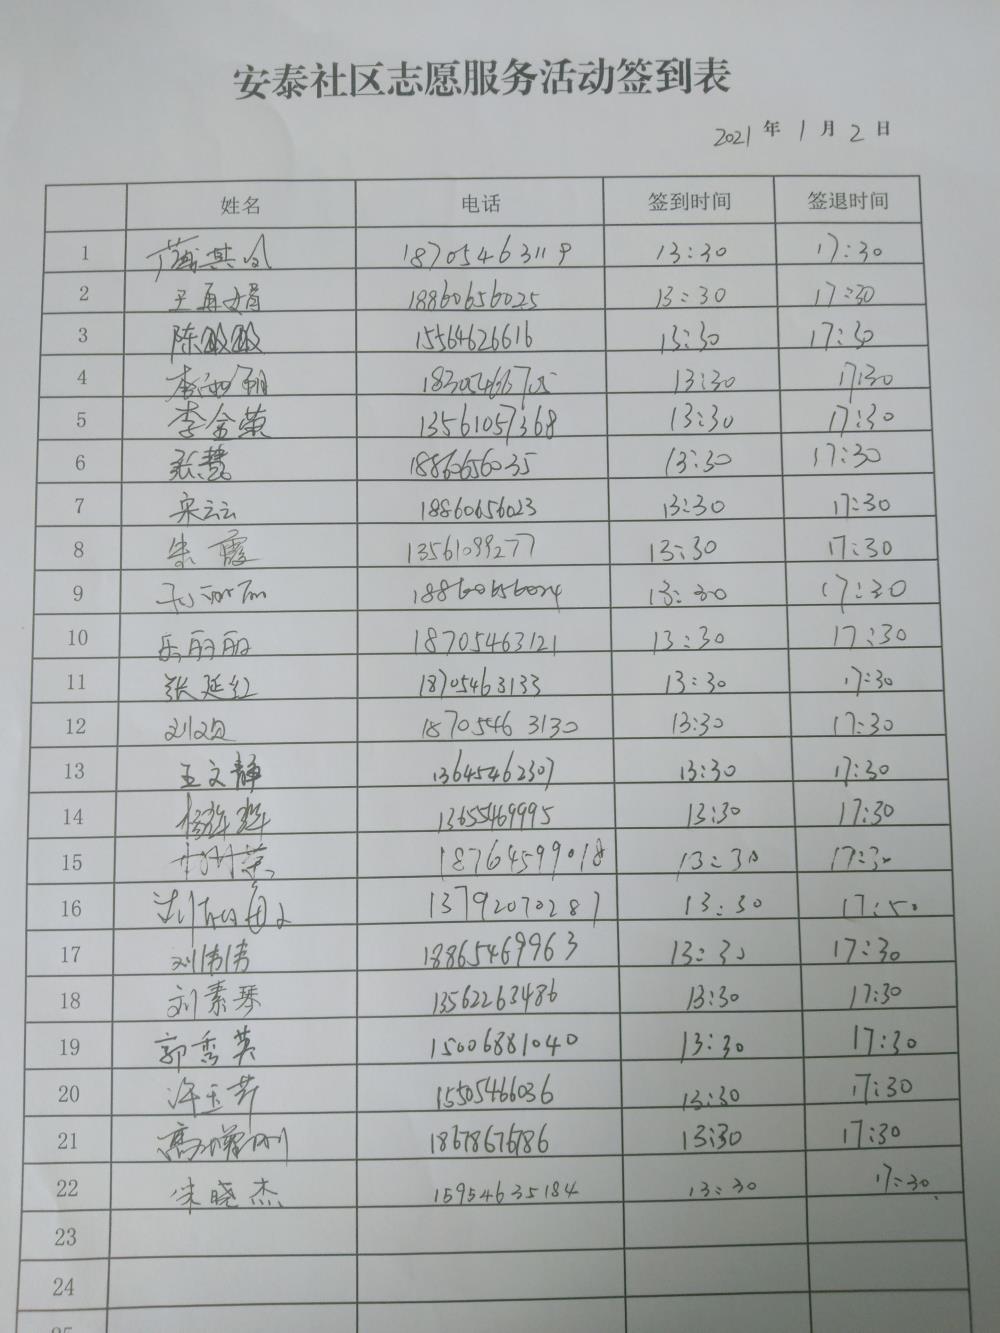 安泰社区志愿服务活动签到表
2021 年 1 月 2 日
姓名 电话 签到时间 签退时间
1 18705463119 13:30 17:30
2 王再娟 18860656025 13:30 17:30
3 陈敏敏 15564626616 13:30 17:30
4 13:30 17:30
5 李金荣 13561057368 13:30 17:30
6 张慧 18860656035 13:30 17:30
7 宋云云 18860656023 13:30 17:30
8 朱霞 13561099277 13:30 17:30
9 18860656024 13:30 17:30
10 乐丽丽 18705463121 13:30 17:30
11 张延红 18705463133 13:30 17:30
12 18705463130 13:30 17:30
13 王文静 13645462307 13:30 17:30
14 13655469995 13:30 17:30
15 18764599018 13:30 17:30
16 13792070287 13:30 17:50
17 刘伟伟 18865469963 13:30 17:30
18 刘素琴 13562263486 13:30 17:30
19 郭秀英 15006881040 13:30 17:30
20 许玉芹 15505466036 13:30 17:30
21 18678676786 13:30 17:30
22 朱晓杰 15954635184 13:30 17:30
23
24